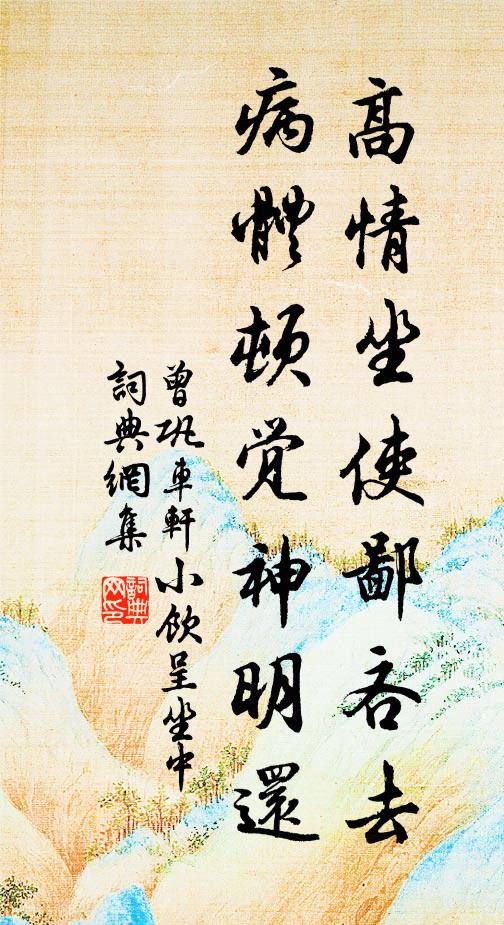 高情坐使鄙吝去
病體頓覚神明還
曾巩車軒小飲呈坐中
詞典網集
詞典网印